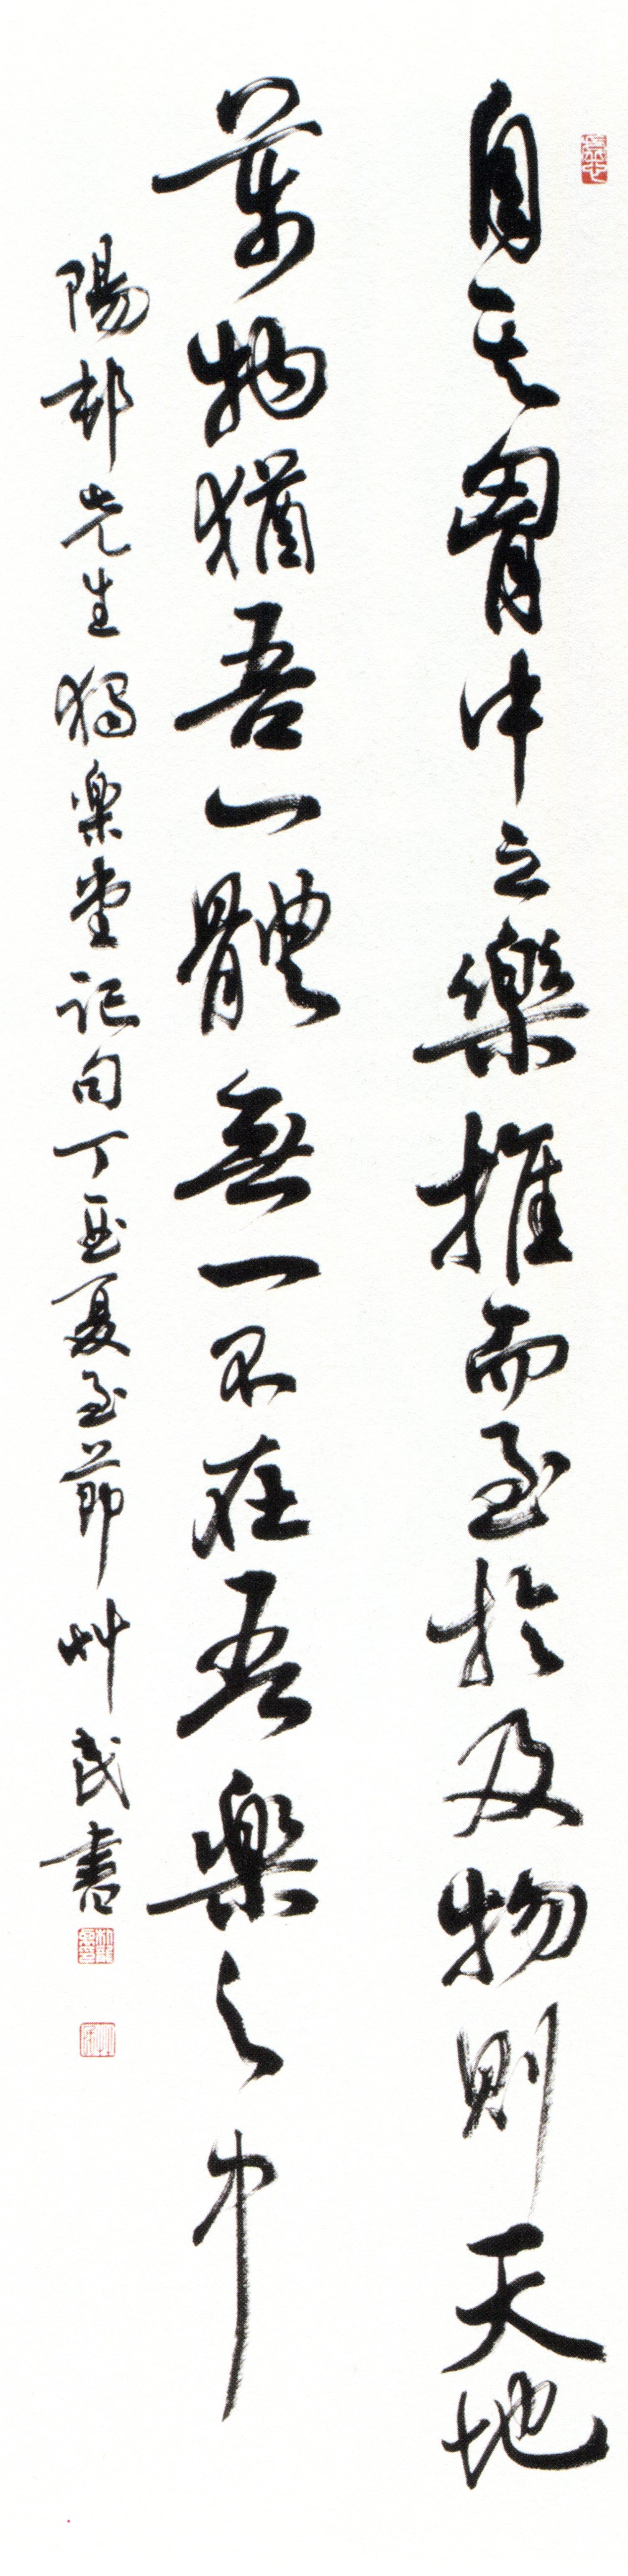 自其胷中之樂推而至於及物則天地
萬物猶吾一體無一不在吾樂之中
陽邨先生獨樂堂記句丁亚夏至節艸民書